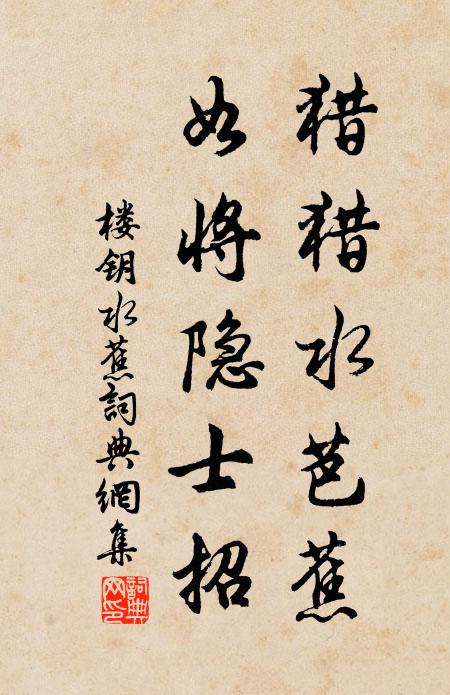 猎猎水芭蕉
如将隐士招
楼钥水蕉詞典網集
詞典网印